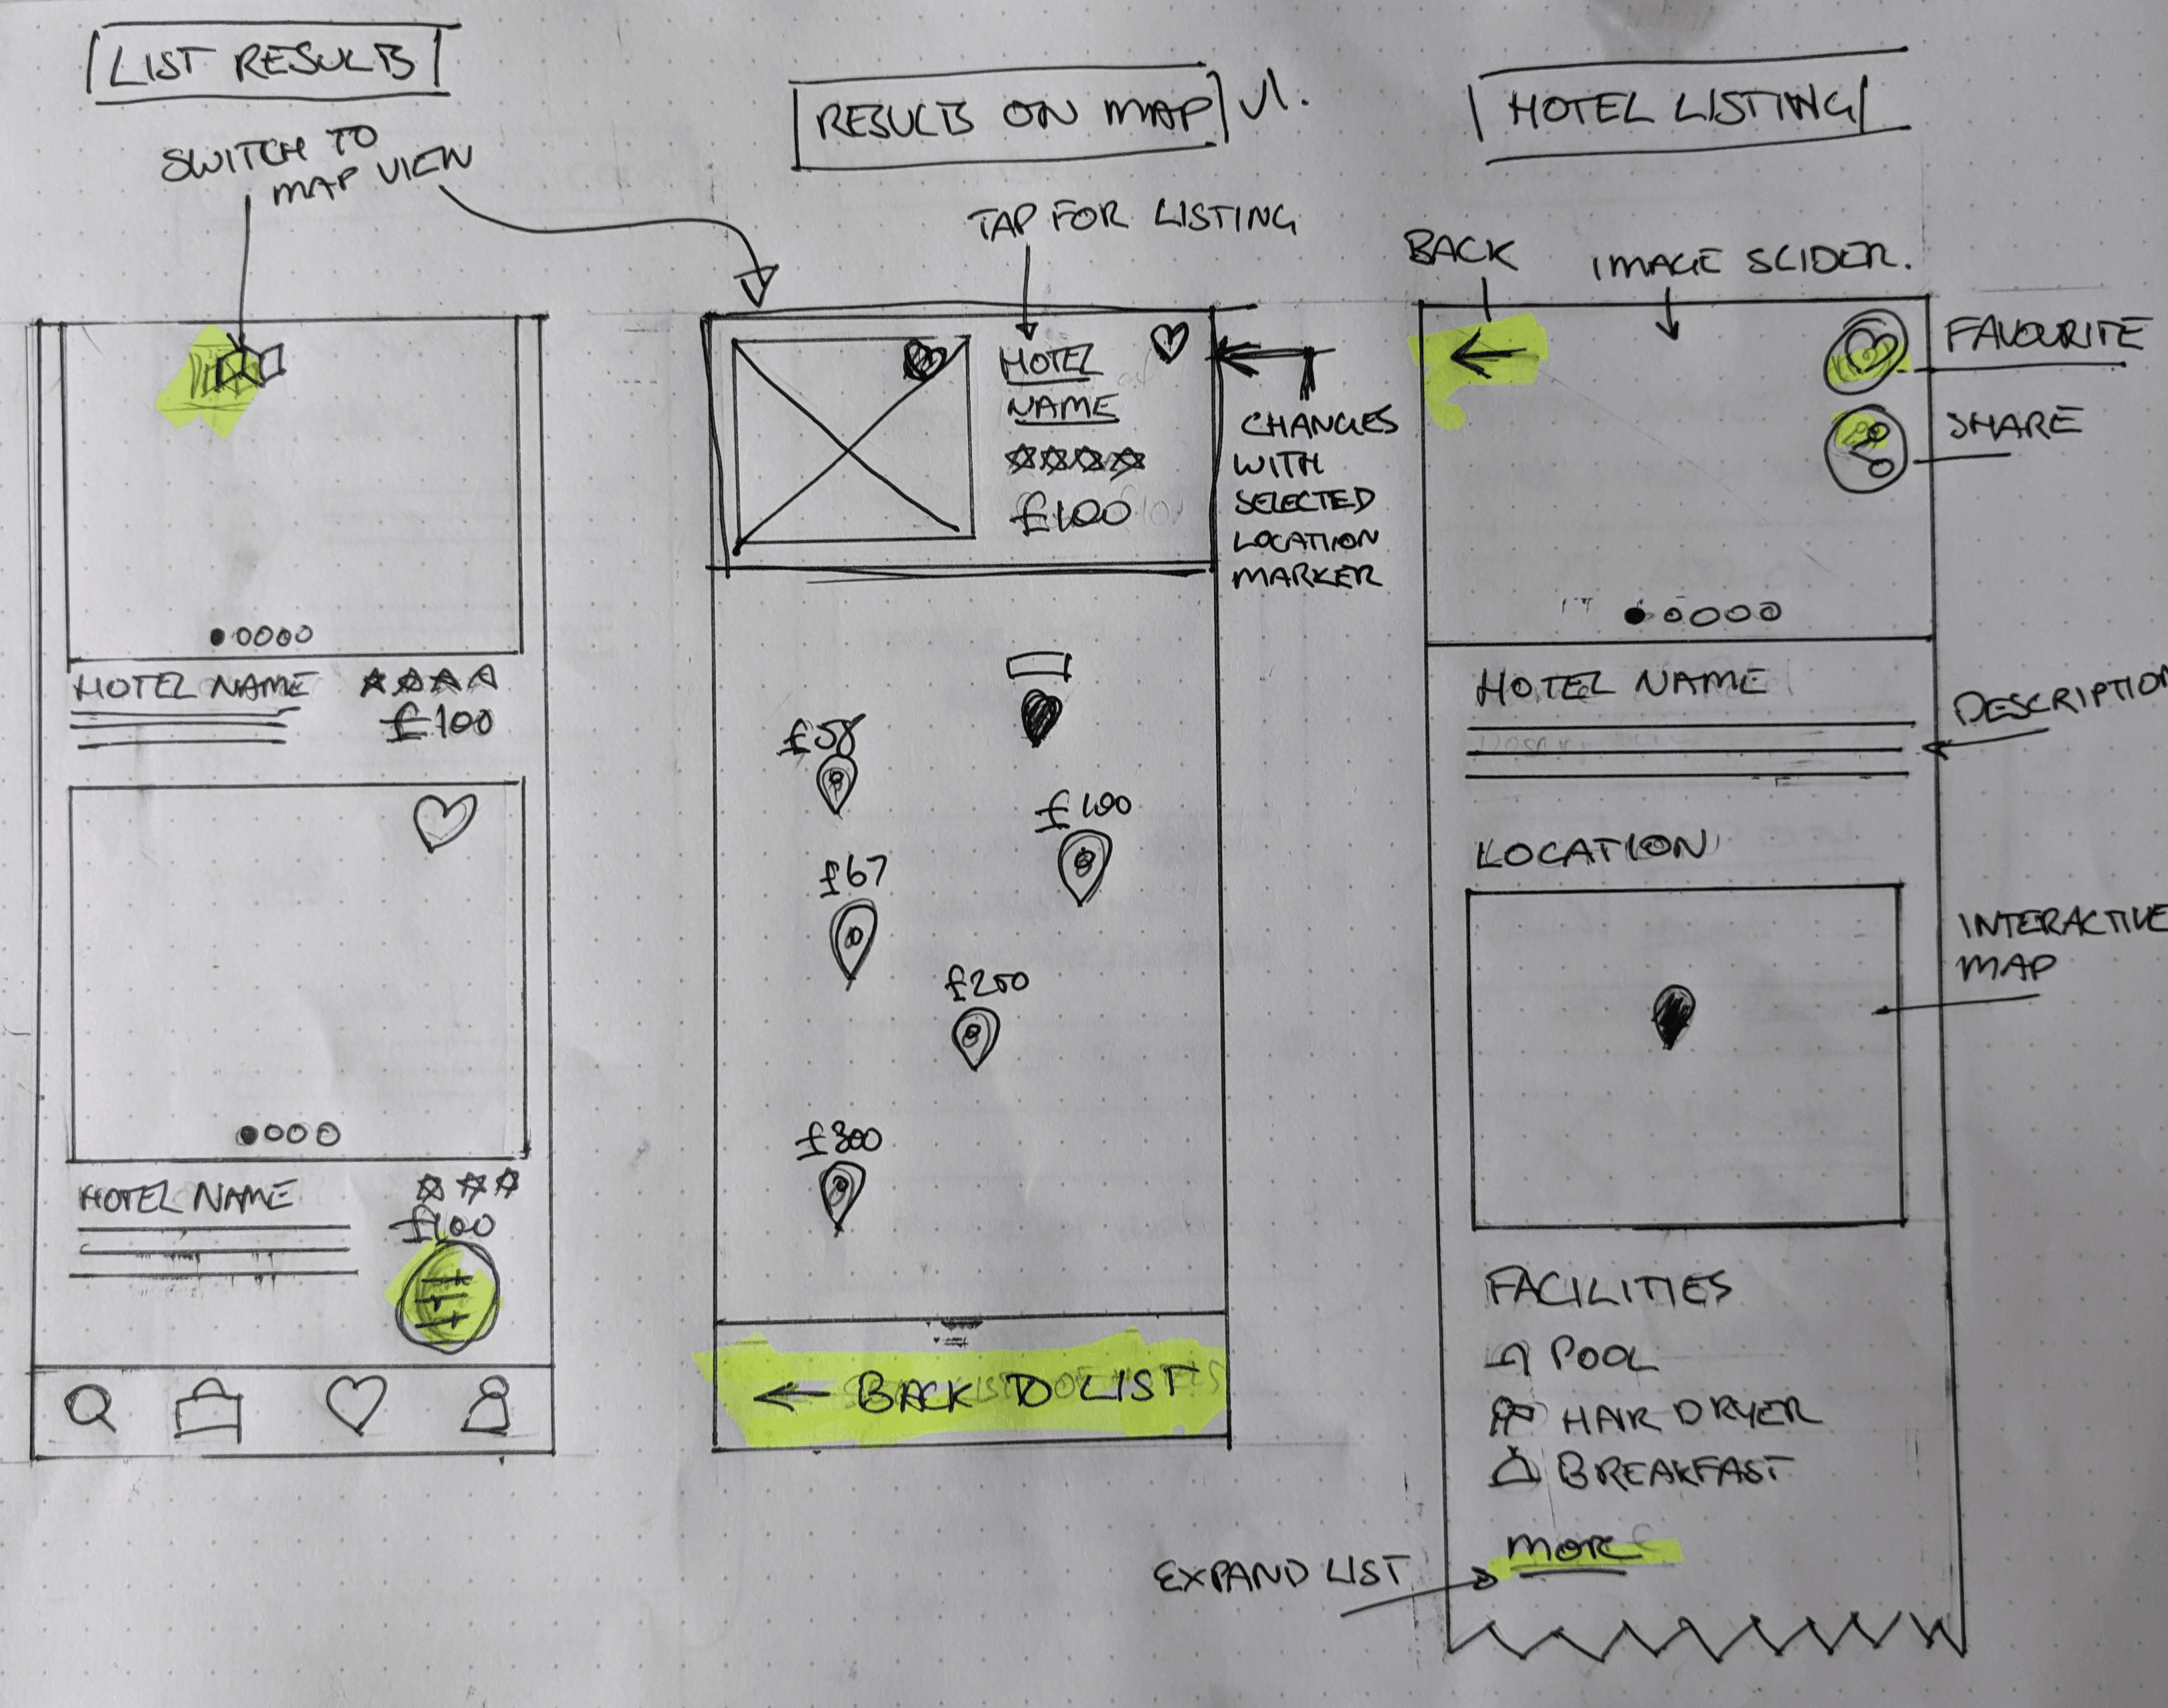 LIST RESULTS
SWITCH TO
MAP VIEW
HOTEL NAME
£100
HOTEL NAME
£100
RESULTS ON MAP V1.
TAP FOR LISTING
HOTEL
NAME
£100
CHANGES
WITH
SELECTED
LOCATION
MARKER
£58
£100
£67
£200
£300
← BACK TO LIST
HOTEL LISTING
BACK
IMAGE SLIDER.
FAVOURITE
SHARE
HOTEL NAME
DESCRIPTION
LOCATION
INTERACTIVE
MAP
FACILITIES
POOL
HAIR DRYER
BREAKFAST
MORE
EXPAND LIST